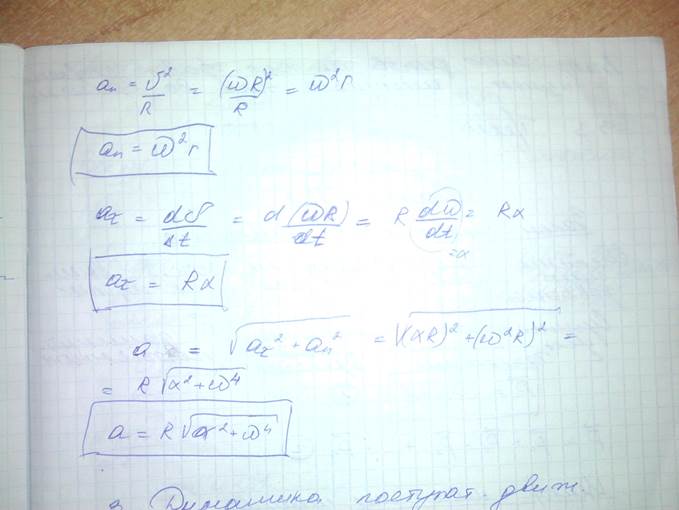 aₙ = υ²/R = (ωR)²/R = ω²r
aₙ = ω²r
aτ = dυ/dt = d(ωR)/dt = R dω/dt = Rα
=α
aτ = Rα
a = √(aτ² + aₙ²) = √((αR)² + (ω²R)²) =
= R√(α² + ω⁴)
a = R√(α² + ω⁴)
Динамика поступат. движ.